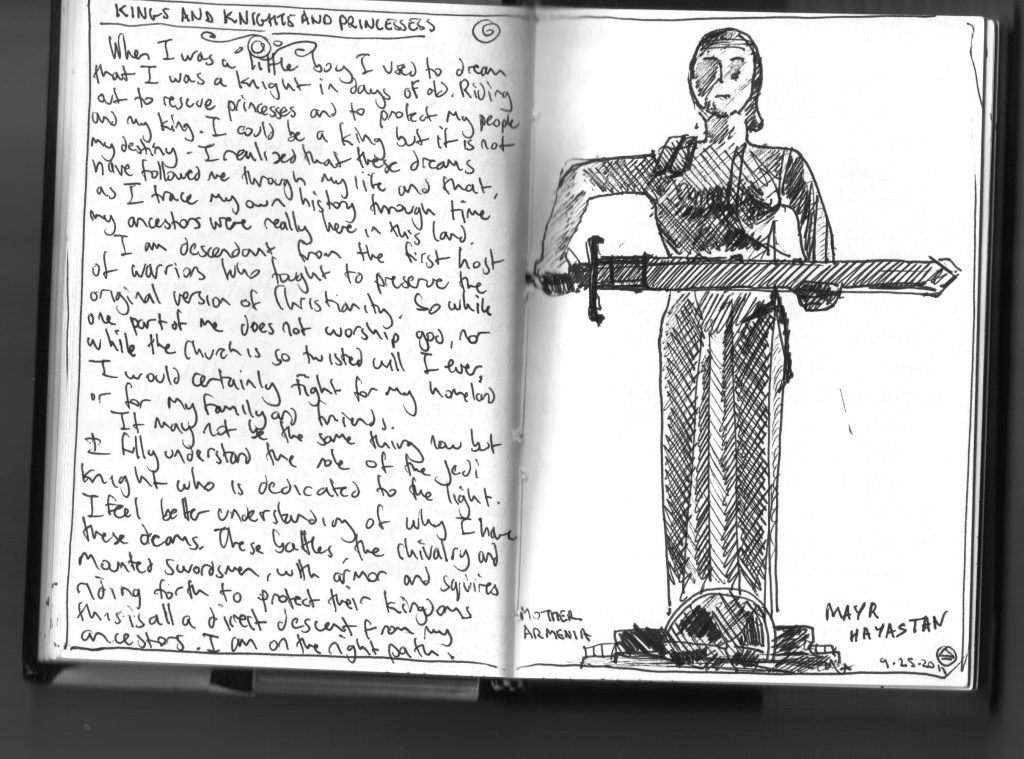 KINGS AND KNIGHTS AND PRINCESSES
6
When I was a little boy I used to dream
that I was a knight in days of old. Riding
out to rescue princesses and to protect my people
and my king. I could be a king but it is not
my destiny. I realized that these dreams
have followed me through my life and that,
as I trace my own history through time
my ancestors were really here in this land.
I am descendant from the first host
of warriors who fought to preserve the
original version of Christianity. So while
one part of me does not worship god, nor
while the church is so twisted will I ever,
I would certainly fight for my homeland
or for my family and friends.
It may not be the same thing now but
I fully understand the role of the Jedi
Knight who is dedicated to the light.
I feel better understanding of why I have
these dreams. These battles, the chivalry and
mounted swordsmen, with armor and squires
riding forth to protect their kingdoms
this is all a direct descent from my
ancestors. I am on the right path.
MOTHER
ARMENIA
MAYR
HAYASTAN
9-25-20